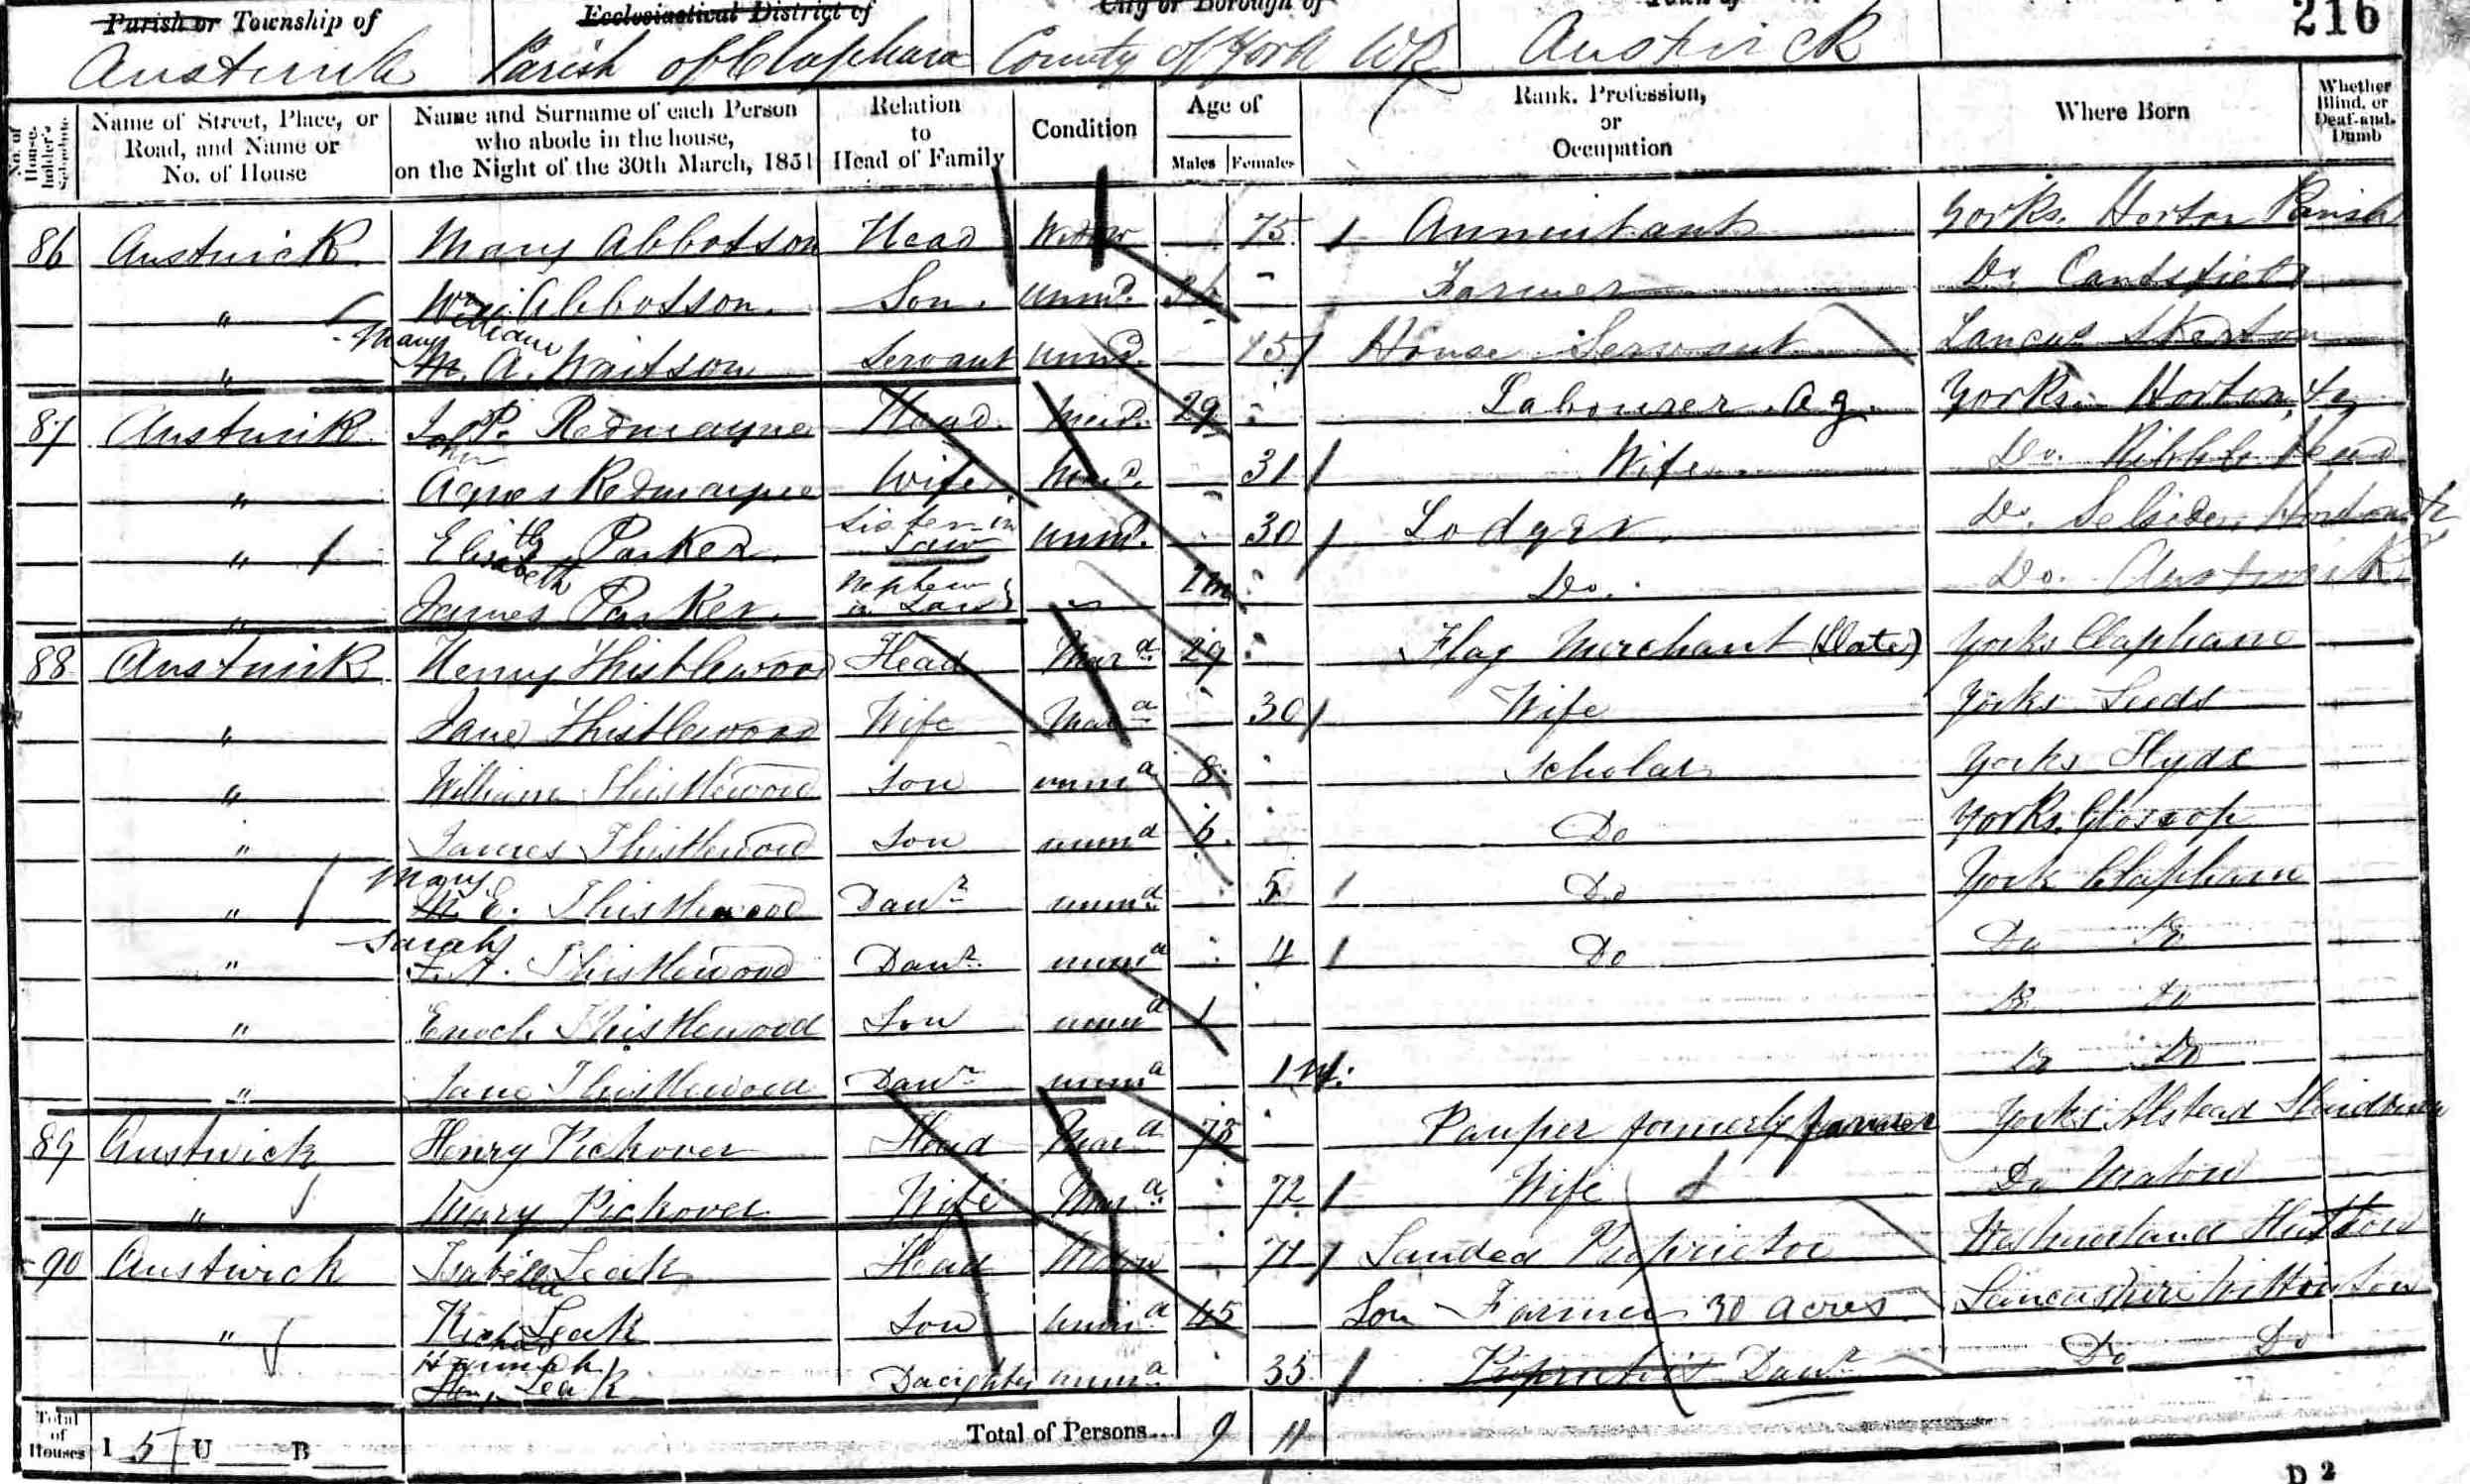 Parish or Township of Ecclesiastical District of City or Borough of Town of 216
Austwick Parish of Clapham County of York WR Austwick
No. of House-holder's Schedule
Name of Street, Place, or Road, and Name or No. of House
Name and Surname of each Person who abode in the house, on the Night of the 30th March, 1851
Relation to Head of Family
Condition
Age of
Males Females
Rank, Profession, or Occupation
Where Born
Whether Blind, or Deaf-and-Dumb
86 Austwick Mary Abbotson Head Widow 75 Annuitant Yorks. Horton Parish
" Wm Abbotson. Son. Unmd. Farmer Do Cantsfield
William
Mary
" M. A. Waitson Servant Unmd. House Servant Skerton
87 Austwick Jno P. Redmayne Head. Mard. 29 Labourer Ag. Yorks. Horton
John
" Agnes Redmayne Wife Mard. 31 Wife Do. Ribble Head
" Elizth Parker Sister in Law Unmd. 30 Lodger Do. Selside
Elisabeth
" James Parker. Nephew in Law Do. Do. Austwick
88 Austwick Henry Thistlewood Head Mard 29 Flag Merchant (Slate) Yorks Clapham
" Jane Thistlewood Wife Mard 30 Wife Yorks Leeds
" William Thistlewood Son unmd 8 Scholar Yorks Hyde
" James Thistlewood Son unmd 6 Do Yorks. Glossop
Mary
" M E. Thistlewood Daur unmd 5 Do York Clapham
Sarah
" S. A. Thistlewood Daur. unmd 4 Do Do Do
" Enoch Thistlewood Son unmd 1 Do Do
" Jane Thistlewood Daur unmd 1 M. Do Do
89 Austwick Henry Pickover Head Mard 73 Pauper formerly farmer Yorks
" Mary Pickover Wife Mard. 72 Wife Do
90 Austwick Isabella Leak Head Widow 71 Landed Proprietor Westmorland Hutton
" Richd Leak Son unmd 45 Son Farmer 30 acres Lancashire Wittington
Richard
Hannah
Han. Leak Daughter unmd 35 Proprietor's Daur Do Do
Total of Houses I 5 U B Total of Persons... 9 11
D 2